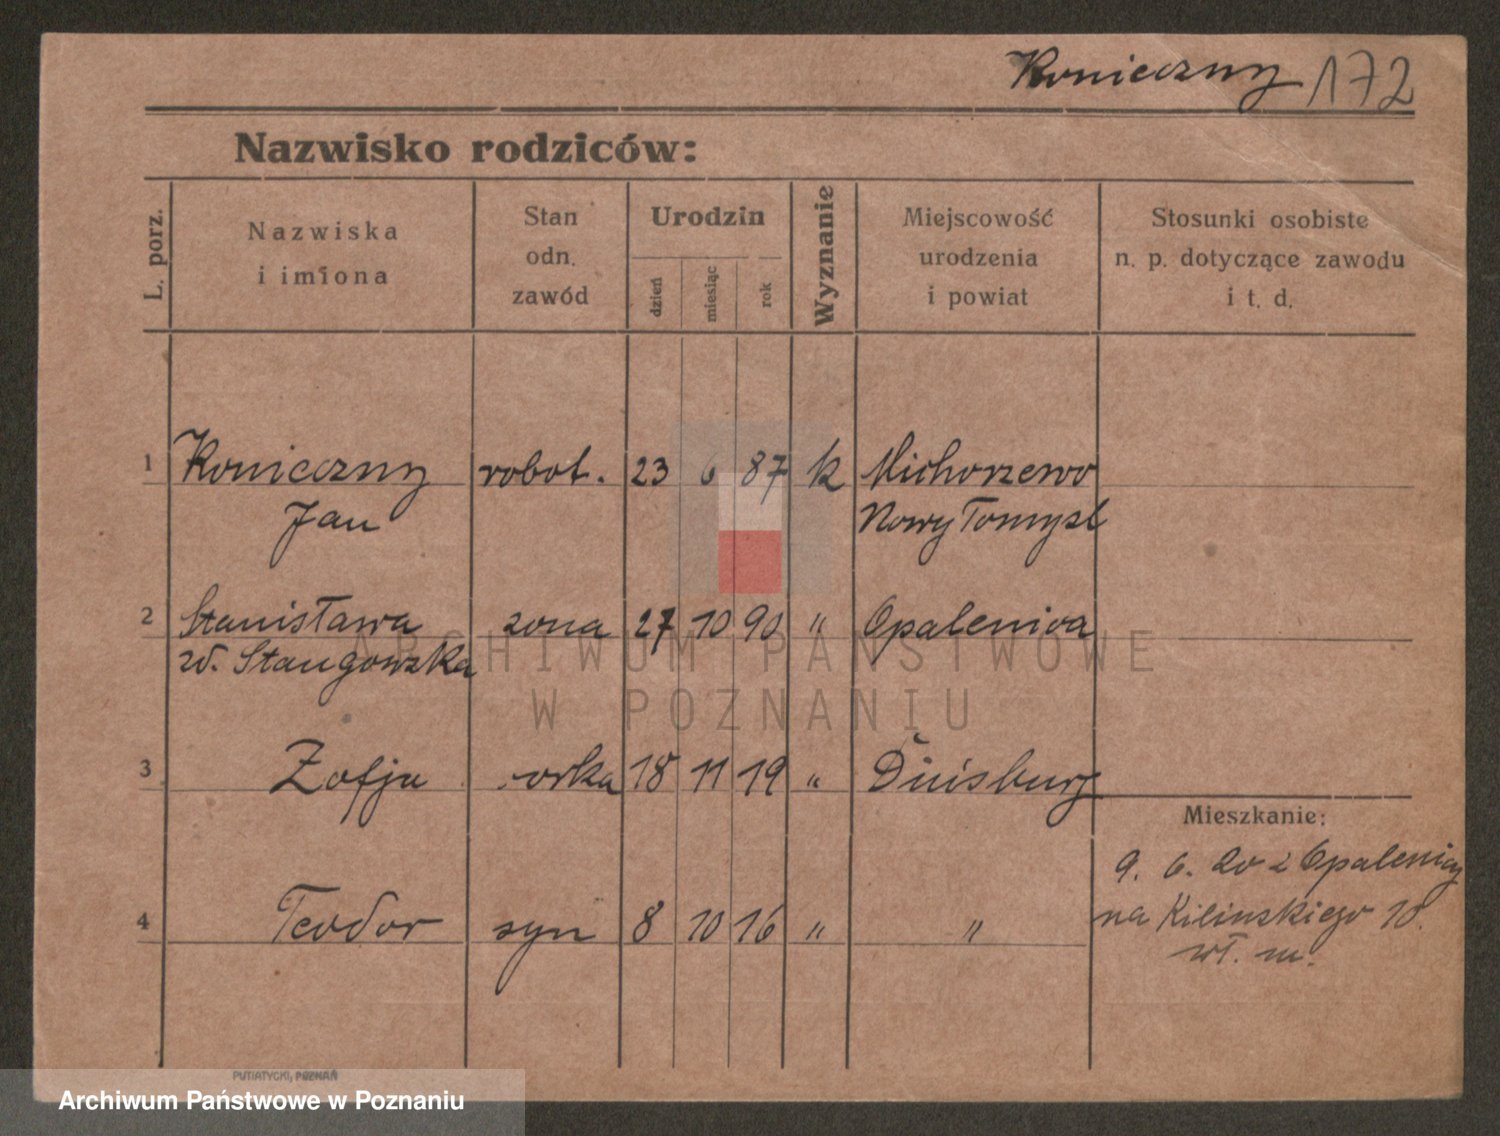 Konieczny 172
Nazwisko rodziców:
L. porz.
Nazwiska
i imiona
Stan
odn.
zawód
Urodzin
dzień
miesiąc
rok
Wyznanie
Miejscowość
urodzenia
i powiat
Stosunki osobiste
n. p. dotyczące zawodu
i t. d.
1 Konieczny robot. 23 6 87 k Michorzewo
Jan Nowy Tomysl
2 Stanisława zona 27 10 90 " Opalenica
3 Zofja 18 11 19 " Duisburg
Mieszkanie:
4 Teodor syn 8 10 16 " "
9. 6. 20 z Opalenicy
na Kilinskiego 10.
wł. m.
ARCHIWUM PAŃSTWOWE
W POZNANIU
PUTIATYCKI, POZNAŃ
Archiwum Państwowe w Poznaniu